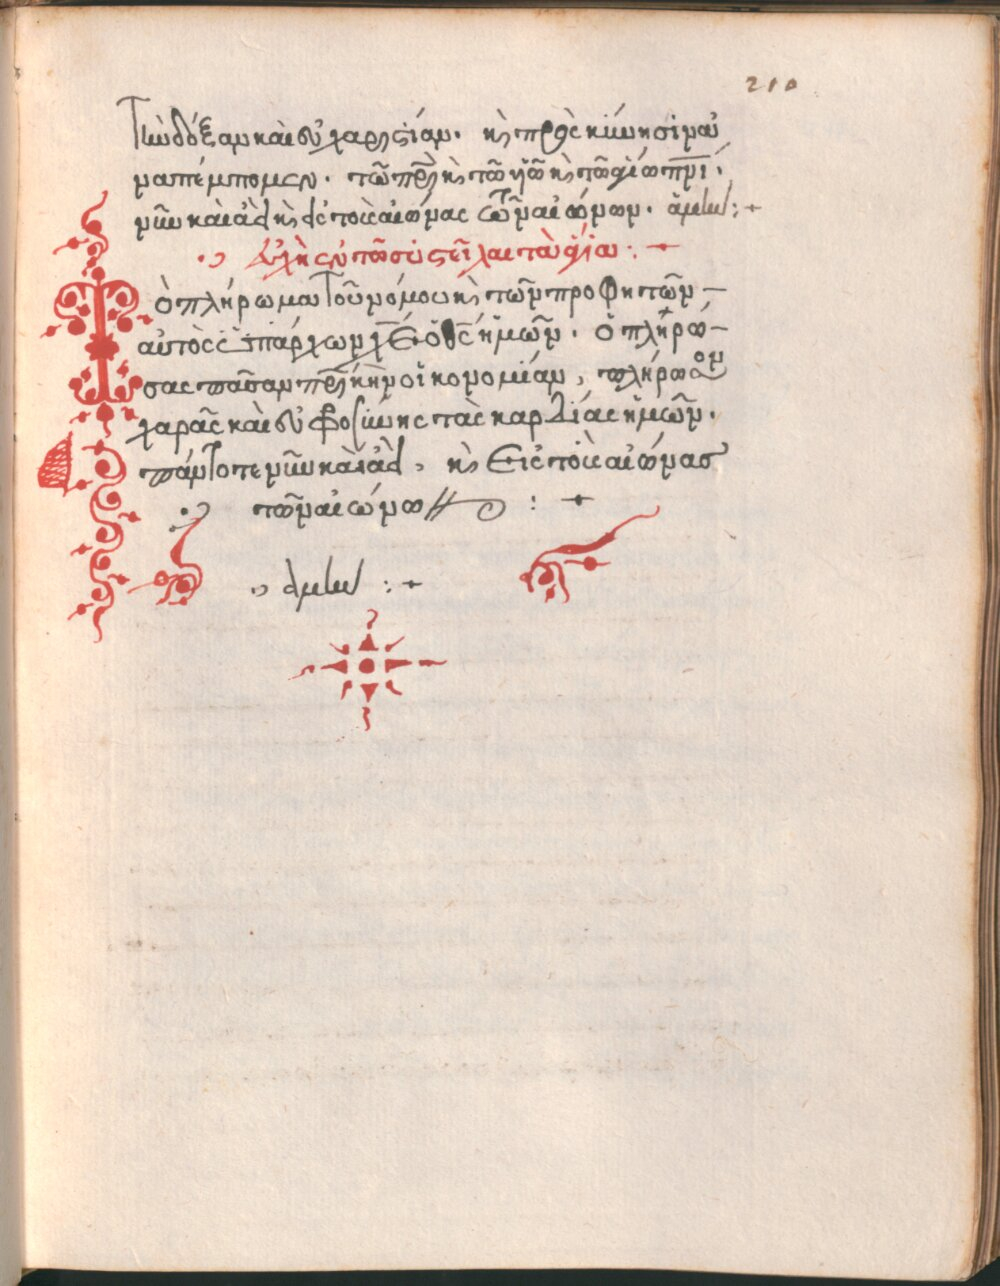 210
τὴν δόξαν καὶ εὐχαριστίαν. κ(αὶ) προσκύνησιν ἀ
ναπέμπομεν. τῶ πρὶ κ(αὶ) τῶ υἱῶ κ(αὶ) τῶ ἁγίω πνι.
νῦν καὶ ἀεὶ κ(αὶ) εἰς τοὺς αἰῶνας τῶν αἰώνων. ἀμὴν :+
Εὐχὴ ἐν τῶ συστεῖλαι τὰ ἅγια :
ὁ πλήρωμα τοῦ νόμου κ(αὶ) τῶν προφητῶν
αὐτὸς ὑπάρχων χε ὁ θς ἡμῶν. ὁ πληρώ
σας πᾶσαν πρικὴν οἰκονομίαν, πλήρωσον
χαρᾶς καὶ εὐφροσύνης τὰς καρδίας ἡμῶν.
πάντοτε νῦν καὶ ἀεὶ, κ(αὶ) εἰς τοὺς αἰῶνας
τῶν αἰώνω : +
ἀμὴν : +